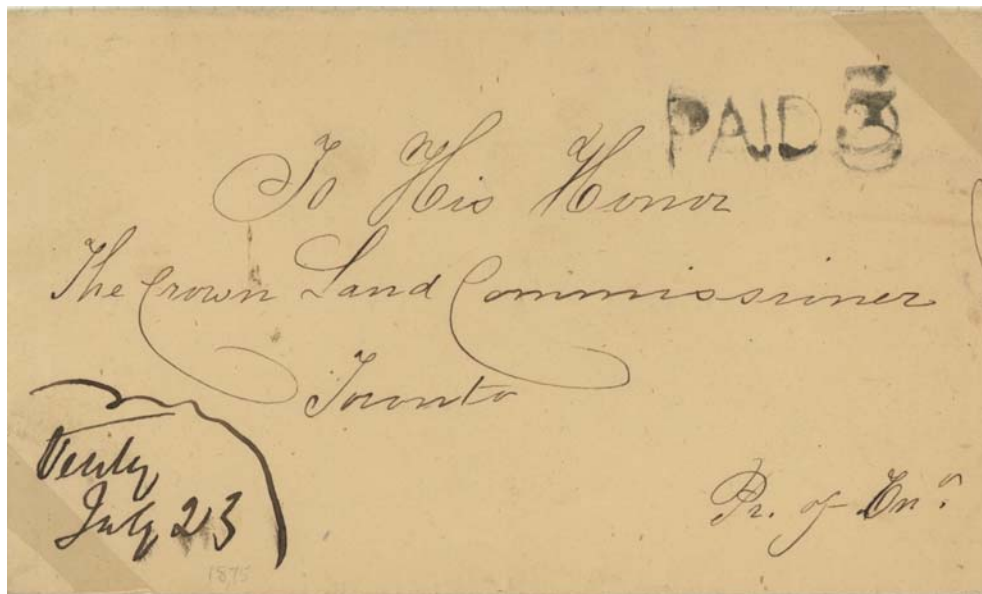 PAID 3
To His Honor
The Crown Land Commissioner
Toronto
Verily
July 23
1875
Pr. of On.º